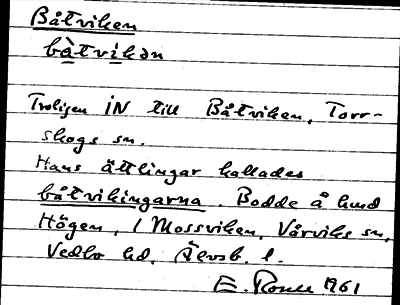 Båtviken
bàtvikən
Troligen IN till Båtviken, Torr-
skogs sn.
Hans ättlingar kallades
båtvikingarna. Bodde å lund
Högen, / Mossviken, Vårviks sn,
Vedbo hd, Älvsb. l.
E. 1961